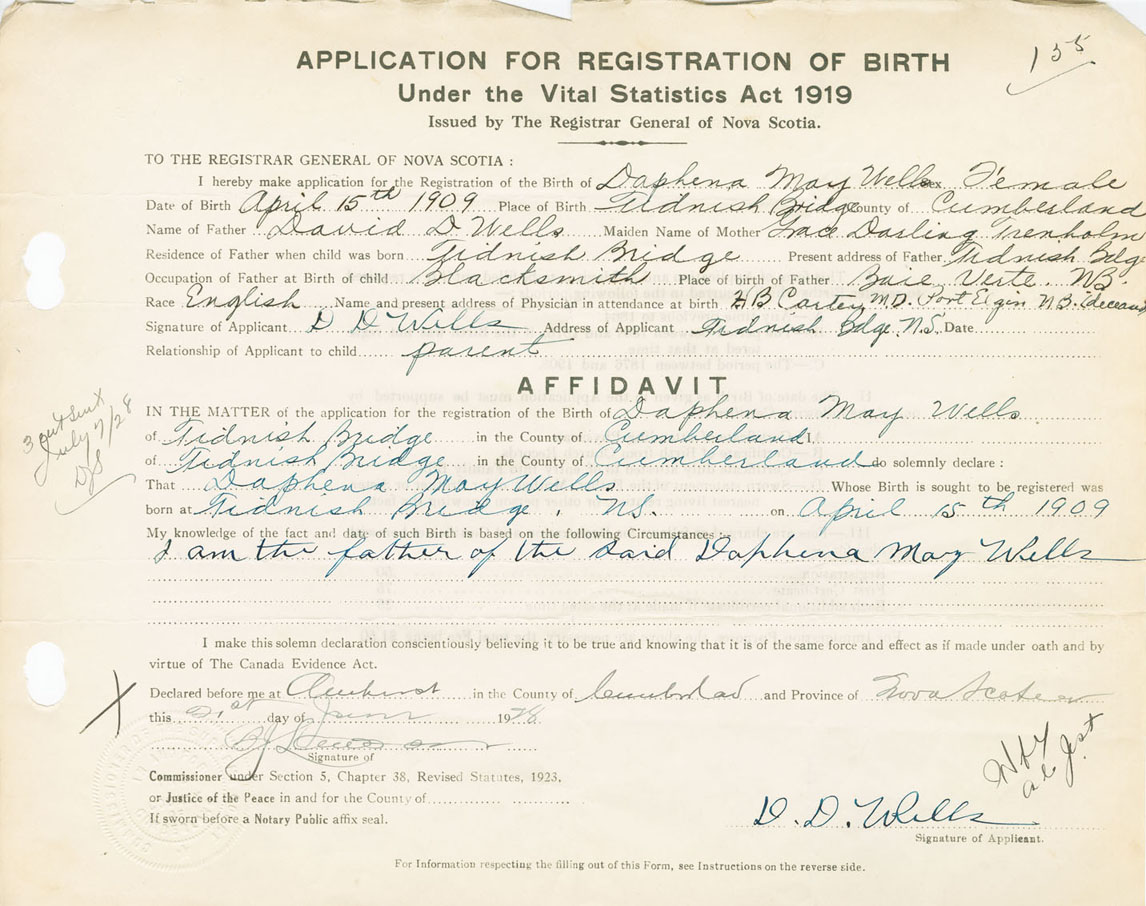 155
APPLICATION FOR REGISTRATION OF BIRTH
Under the Vital Statistics Act 1919
Issued by The Registrar General of Nova Scotia.
TO THE REGISTRAR GENERAL OF NOVA SCOTIA :
I hereby make application for the Registration of the Birth of Daphena May Wells Sex Female
Date of Birth April 15th 1909 Place of Birth Tidnish Bridge County of Cumberland
Name of Father David D Wells Maiden Name of Mother Darling Trenholm
Residence of Father when child was born Tidnish Bridge Present address of Father Tidnish Bdge
Occupation of Father at Birth of child Blacksmith Place of birth of Father Baie Verte. NB.
Race English Name and present address of Physician in attendance at birth H B Carter M.D. Port Elgin N.B.
Signature of Applicant D D Wells Address of Applicant Tidnish Bdge. N.S. Date
Relationship of Applicant to child parent
AFFIDAVIT
IN THE MATTER of the application for the registration of the Birth of Daphena May Wells
of Tidnish Bridge in the County of Cumberland I,
of Tidnish Bridge in the County of Cumberland do solemnly declare :
That Daphena May Wells Whose Birth is sought to be registered was
born at Tidnish Bridge, NS. on April 15th 1909
My knowledge of the fact and date of such Birth is based on the following Circumstances :-
I am the father of the said Daphena May Wells
I make this solemn declaration conscientiously believing it to be true and knowing that it is of the same force and effect as if made under oath and by
virtue of The Canada Evidence Act.
Declared before me at Amherst in the County of Cumberland and Province of Nova Scotia
this 21st day of June 1928
Signature of
Commissioner under Section 5, Chapter 38, Revised Statutes, 1923,
or Justice of the Peace in and for the County of
If sworn before a Notary Public affix seal.
D. D. Wells
Signature of Applicant.
For Information respecting the filling out of this Form, see Instructions on the reverse side.
July 7/28